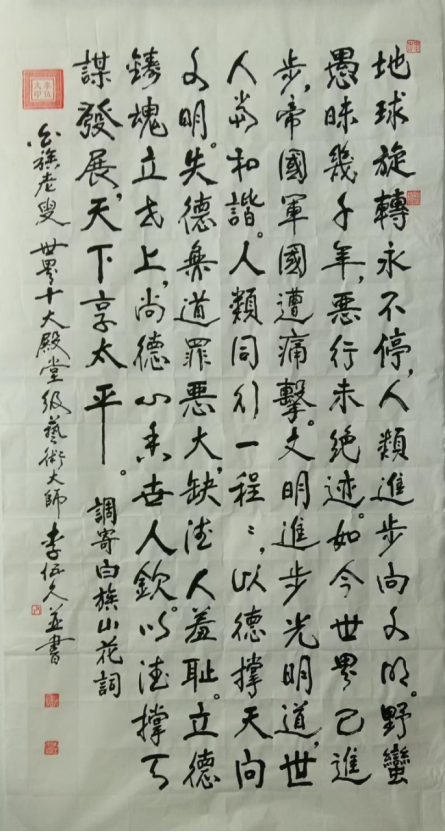 地球旋轉永不停,人類進步向文明。野蠻
愚昧幾千年,惡行未絕迹。如今世界已進
步,帝國軍國遭痛擊。文明進步光明道,世
人崇和諧。人類同行一程〻,以德撐天向
文明。失德無道罪惡大,缺德人羞恥。立德
鑄魂立世上,尚德心香世人欽。以德撐天
謀發展,天下享太平。 調寄白族山花詞
白族老叟 世界十大殿堂級藝術大師 李伍久並書